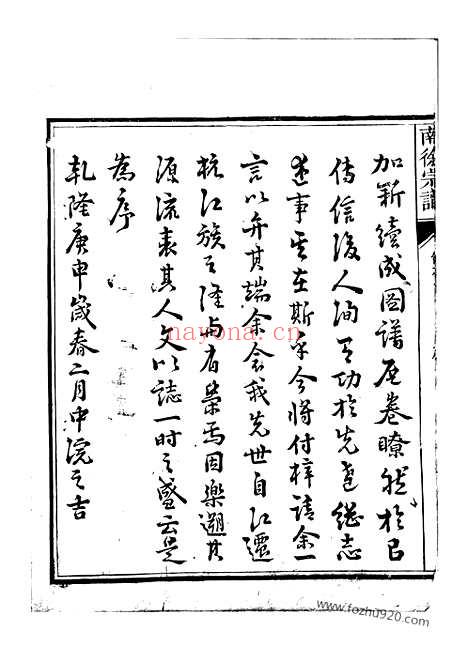 南徐宗譜
加新續成圖譜展卷瞭然於已
傳信後人洵有功於先更繼志
述事其在斯乎今將付梓請余一
言以弁其端余念我先世自江遷
杭江族之隆与有榮焉因樂遡其
源流表其人文以誌一時之盛云是
為序
乾隆庚申歲春二月中浣之吉
nayona.cn
www.fozhu920.com